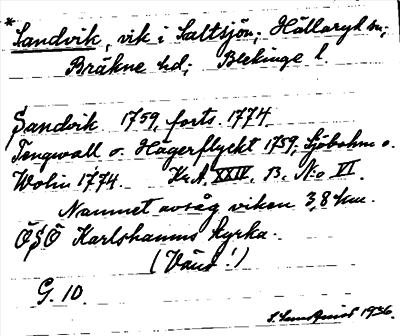 *Sandvik, vik i Saltsjön; Hällaryds sn;
Bräkne hd; Blekinge l.
Sandvik 1759, forts. 1774
Tengwall o. Hägerflyckt 1759; Sjöbohm o.
Wolin 1774. Kr.A. XXIV. 13. N:o VI.
Namnet avsåg viken 3,8 km.
ÖSÖ Karlshamns kyrka.
(Vänd!)
G. 10.
1936.